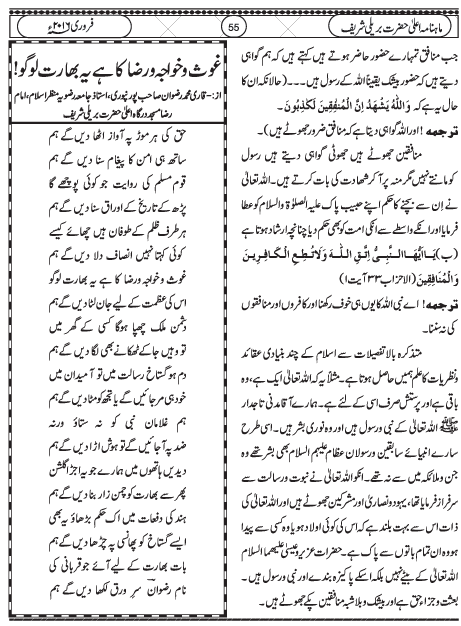 ماہنامہ اعلیٰ حضرت بریلی شریف
55
فروری ۲۰۱۶ء
جب منافق تمہارے حضور حاضر ہوتے ہیں کہتے ہیں کہ ہم گواہی
دیتے ہیں کہ حضور بیشک یقیناً اللہ کے رسول ہیں۔۔۔(حالانکہ ان کا
حال یہ ہے کہ وَاللّٰہُ یَشْھَدُ اِنَّ الْمُنٰفِقِیْنَ لَکٰذِبُوْنَ۔
ترجمہ! اور اللہ گواہی دیتا ہے کہ منافق ضرور جھوٹے ہیں)۔
منافقین جھوٹے ہیں جھوٹی گواہی دیتے ہیں رسول
کو مانتے نہیں مگر منہ پر آکر شہادت کی بات کرتے ہیں۔اللہ تعالیٰ
نے ان سے بچنے کا حکم اپنے حبیب پاک علیہ الصلوٰۃ والسلام کو عطا
فرمایا اور انکے واسطے سے انکی امت کو بھی حکم دیا چنانچہ ارشاد ہوتا ہے
(ب) یٰۤاَیُّھَا النَّبِیُّ اتَّقِ اللّٰہَ وَلَا تُطِعِ الْکَافِرِیْنَ
وَالْمُنَافِقِیْنَ (الاحزاب ۳۳ آیت ا)
ترجمہ! اے نبی اللہ کا یوں ہی خوف رکھنا اور کافروں اور منافقوں
کی نہ سننا۔
متذکرہ بالا تفصیلات سے اسلام کے چند بنیادی عقائد
و نظریات کا علم ہمیں حاصل ہوتا ہے۔مثلاً یہ کہ اللہ تعالیٰ ایک ہے، وہ
باقی ہے اور پرستش صرف اسی کے لئے ہے۔ہمارے آقا مدنی تاجدار
ﷺ اللہ تعالیٰ کے نبی و رسول ہیں اور وہ نوری بشر ہیں۔اسی طرح
سارے انبیائے سابقین و رسولان عظام علیہم السلام بھی بشر تھے وہ
جن و ملائکہ میں سے نہ تھے۔انکو اللہ تعالیٰ نے نبوت و رسالت سے
سرفراز فرمایا تھا، یہود و نصاریٰ اور مشرکین جھوٹے ہیں اور اللہ تعالیٰ کی
ذات اس سے بہت بلند ہے کہ اس کی کوئی اولاد ہو یا وہ کسی سے پیدا
ہو وہ ان تمام باتوں سے پاک ہے۔حضرت عزیر و عیسیٰ علیھما السلام
اللہ تعالیٰ کے بیٹے نہیں بلکہ اسکے پاکیزہ بندے اور نبی و رسول ہیں۔
بعثت و جزاء حق ہے اور بیشک و بلاشبہ منافقین پکے جھوٹے ہیں۔
غوث و خواجہ و رضا کا ہے یہ بھارت لوگو!
از:۔قاری محمد رضوان صاحب پورنپوری، استاذ جامعہ رضویہ منظر اسلام، امام
رضا مسجد درگاہ اعلیٰ حضرت بریلی شریف
حق کی ہر موڑ پہ آواز اٹھا دیں گے ہم
ساتھ ہی امن کا پیغام سنا دیں گے ہم
قوم مسلم کی روایت جو کوئی پوچھے گا
پڑھ کے تاریخ کے اوراق سنا دیں گے ہم
ہر طرف ظلم کے طوفان ہیں چھائے کیسے
کوئی کہتا نہیں انصاف دلا دیں گے ہم
غوث و خواجہ و رضا کا ہے یہ بھارت لوگو
اس کی عظمت کے لیے جان لٹا دیں گے ہم
دشمن ملک چھپا ہوگا کسی کے گھر میں
تو وہیں جاکے ٹھکانے بھی لگا دیں گے ہم
دم ہو گستاخ رسالت میں تو آ میدان میں
خود ہی مر جائیں گے یا تجھ کو مٹا دیں گے ہم
ہم غلامان نبی کو نہ ستاؤ ورنہ
ضد پہ آجائیں گے تو ہوش اڑا دیں گے ہم
دیدیں ہاتھوں میں ہمارے جو یہ اجڑا گلشن
پھر سے بھارت کو چمن زار بنا دیں گے ہم
ہند کی دفعات میں اک حکم بڑھاؤ یہ بھی
ایسے گستاخ کو پھانسی پہ چڑھا دیں گے ہم
بات بھارت کے لیے آئے جو قربانی کی
نام رضوان سر ورق لکھا دیں گے ہم